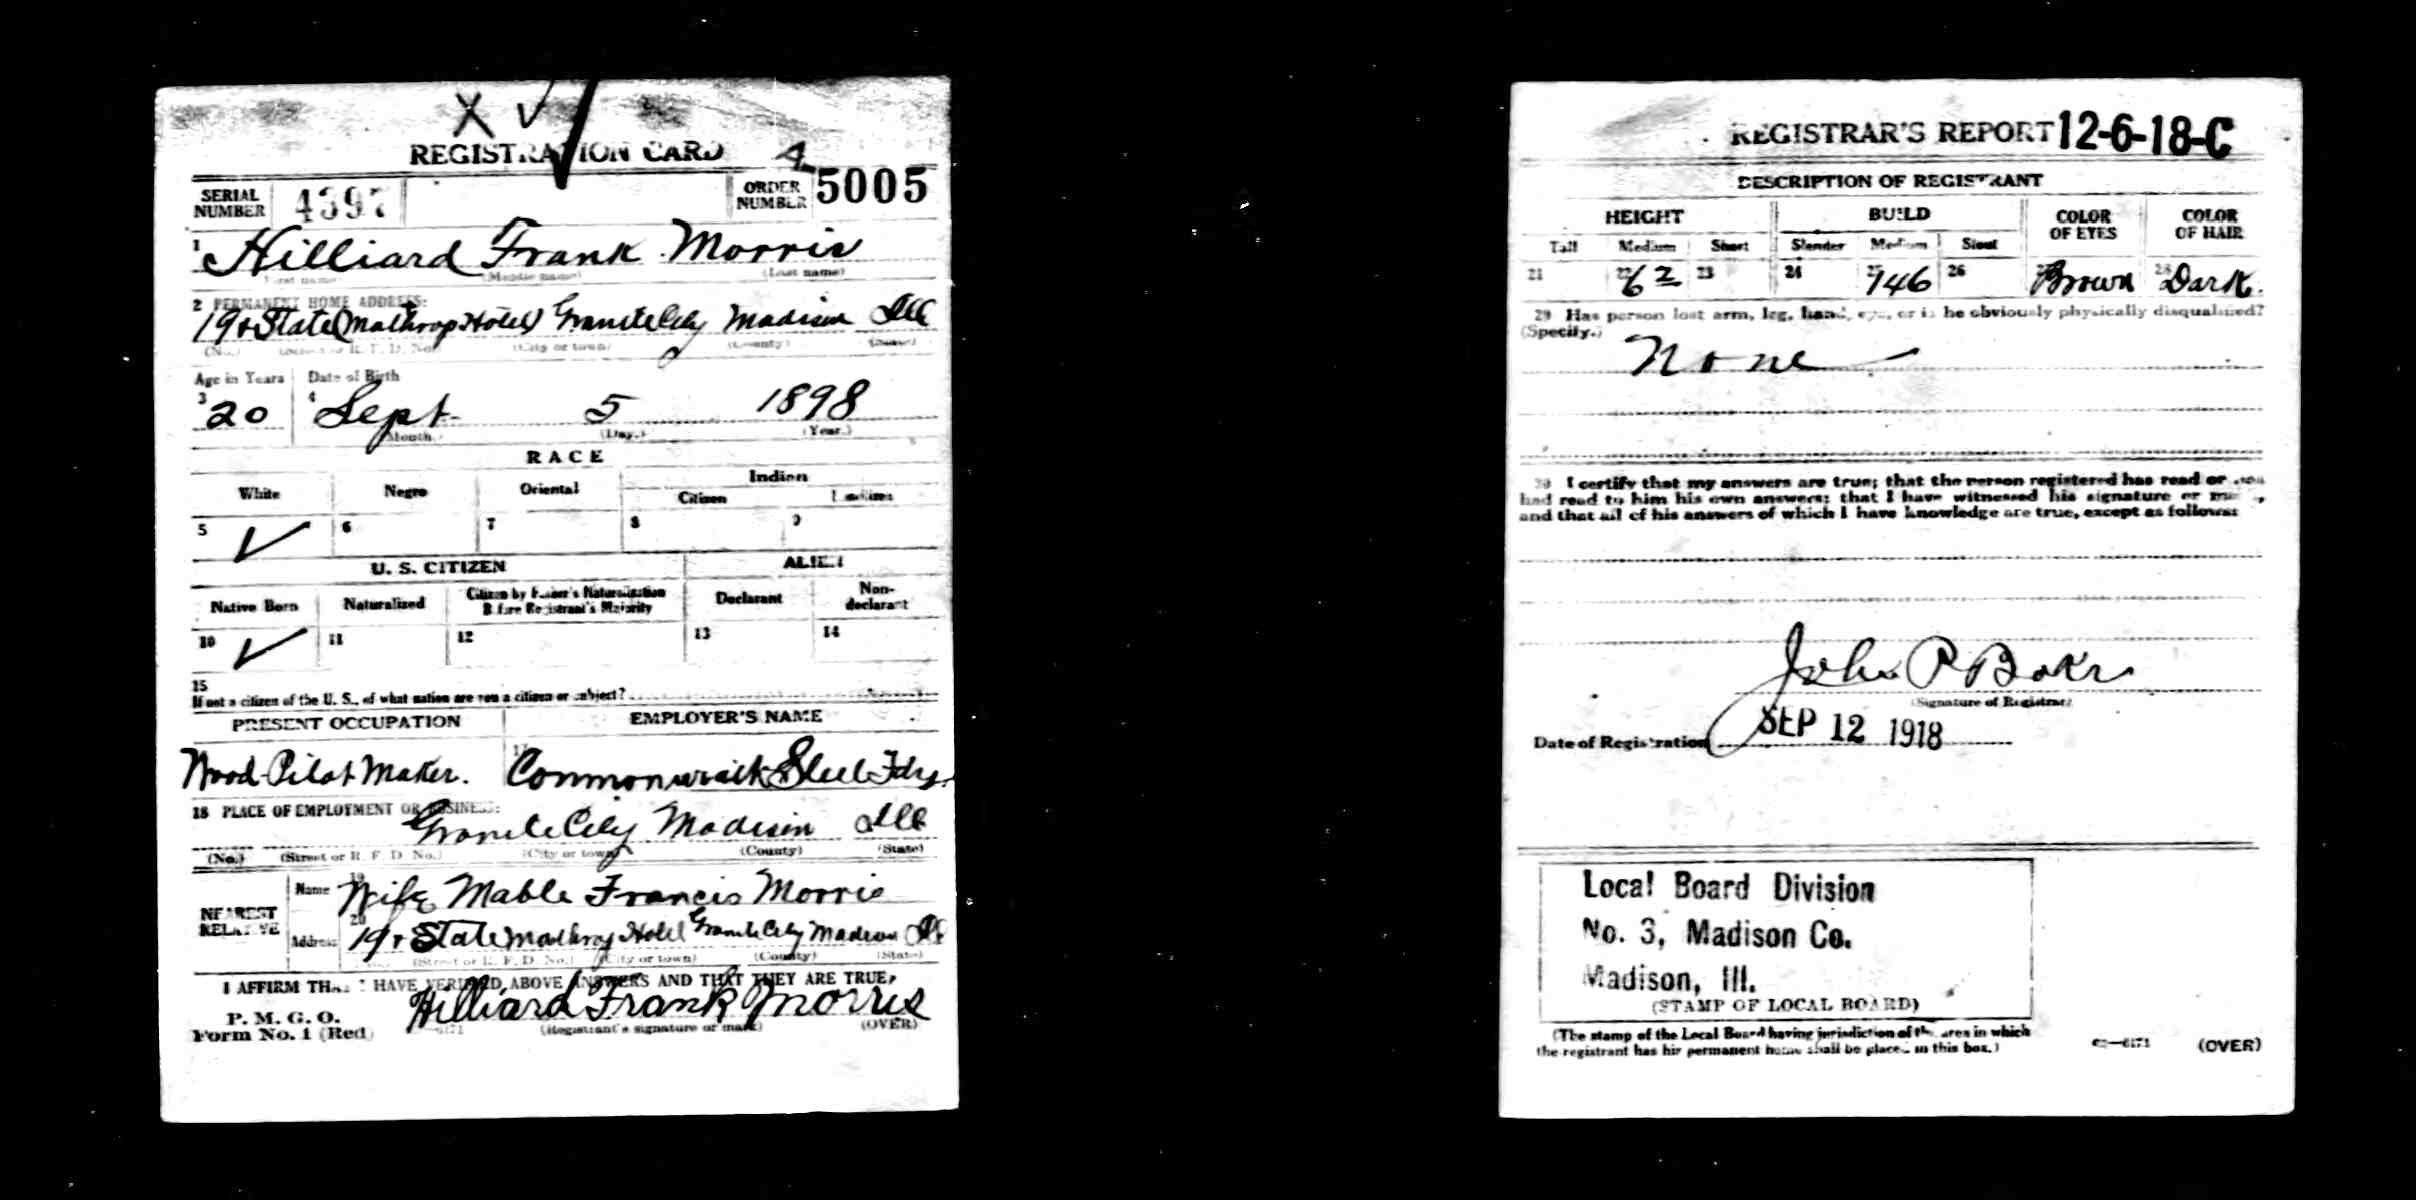 X √
REGISTRATION CARD
SERIAL NUMBER 4397 ORDER NUMBER A 5005
1 Hilliard Frank Morris
(First name) (Middle name) (Last name)
2 PERMANENT HOME ADDRESS:
19 & State (Mathrop Hotel) Granite City Madison Ill
(No.) (Street or R. F. D. No.) (City or town) (County) (State)
Age in Years Date of Birth
3 20 4 Sept. 5 1898
(Month.) (Day.) (Year.)
RACE
White Negro Oriental Indian
Citizen
5 √ 6 7 8 9
U. S. CITIZEN ALIEN
Native Born Naturalized Citizen by Father's Naturalization Before Registrant's Majority Declarant Non-declarant
10 √ 11 12 13 14
15
If not a citizen of the U. S., of what nation are you a citizen or subject?
PRESENT OCCUPATION EMPLOYER'S NAME
Wood Pilot Maker. 17 Commonwealth Steel Fdry.
18 PLACE OF EMPLOYMENT OR BUSINESS:
Granite City Madison Ill
(No.) (Street or R. F. D. No.) (City or town) (County) (State)
NEAREST RELATIVE
Name 19 Wife Mable Francis Morris
Address 20 19 & State Mathrop Hotel Granite City Madison Ill
(Street or R. F. D. No.) (City or town) (County) (State)
I AFFIRM THAT I HAVE VERIFIED ABOVE ANSWERS AND THAT THEY ARE TRUE,
P. M. G. O.
Form No. 1 (Red) Hilliard Frank Morris
(Registrant's signature or mark) (OVER)
REGISTRAR'S REPORT 12-6-18-C
DESCRIPTION OF REGISTRANT
HEIGHT BUILD COLOR OF EYES COLOR OF HAIR
Tall Medium Short Slender Medium Stout
21 22 6 2 23 24 25 146 26 27 Brown 28 Dark.
29 Has person lost arm, leg, hand, eye, or is he obviously physically disqualified?
(Specify.)
None
30 I certify that my answers are true; that the person registered has read or has
had read to him his own answers; that I have witnessed his signature or mark,
and that all of his answers of which I have knowledge are true, except as follows:
John P Baker
(Signature of Registrar)
Date of Registration SEP 12 1918
Local Board Division
No. 3, Madison Co.
Madison, Ill.
(STAMP OF LOCAL BOARD)
(The stamp of the Local Board having jurisdiction of the area in which
the registrant has his permanent home shall be placed in this box.)
(OVER)